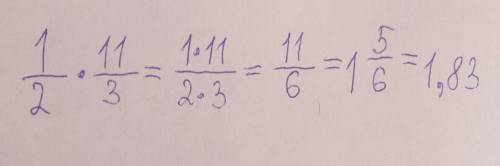 1/2 · 11/3 = 1·11/2·3 = 11/6 = 1 5/6 = 1,83